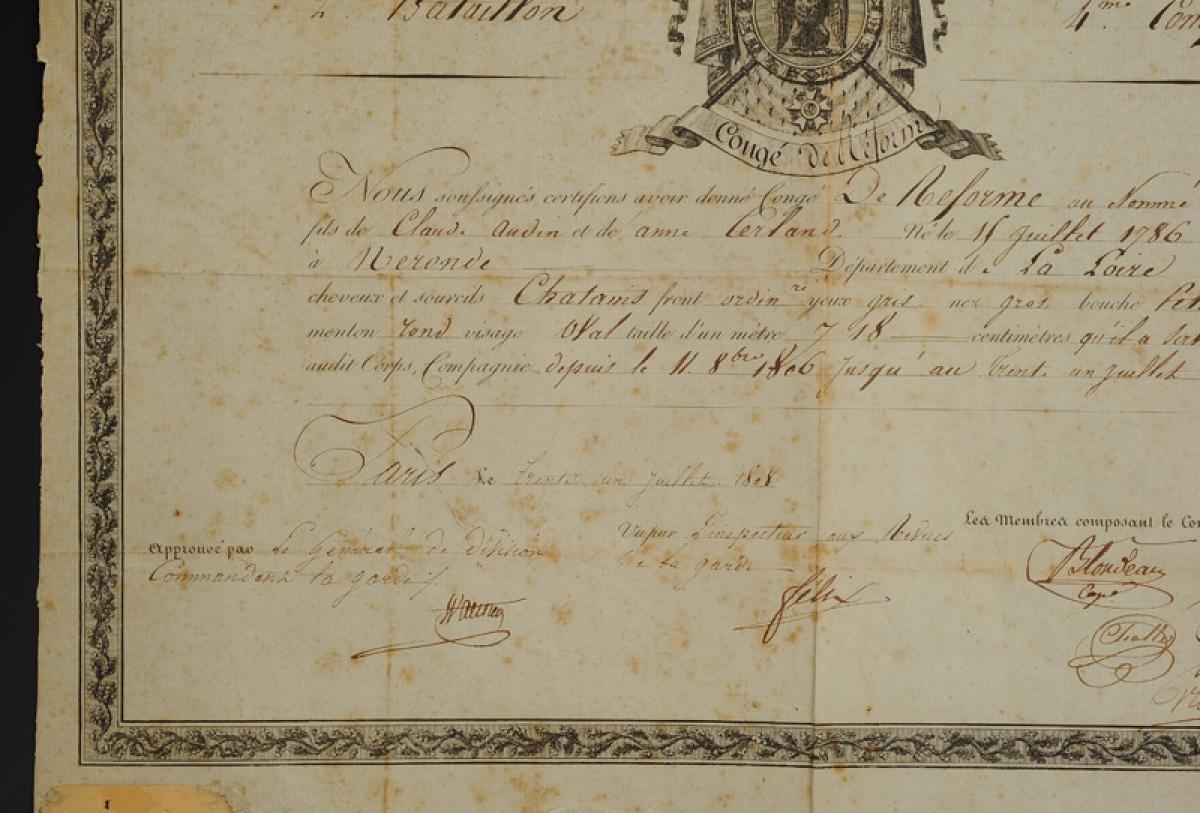 2e Bataillon
4.me
Congé de Réforme
Nous soussignés certifions avoir donné Congé De Reforme au Nommé
fils de Claude Audin et de anne Né le 15 Juillet 1786
à Neronde Département de La Loire
cheveux et sourcils Chatains front ordinre yeux gris nez gros bouche
menton rond visage Oval taille d'un mètre 7 18 centimètres qu'il a
audit Corps, Compagnie depuis le 11. 8bre 1806 Jusqu'au trente un juillet
Paris Le trente un juillet 1808
Vu par L'inspecteur aux Revues
de la garde
Approuvé par Le Général de division
Commandant la garde
Les Membres composant le
félix
Blondeau
Cape